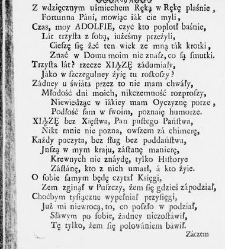 Z wdzięcznym uśmiechem Ręką w Rękę plaśnie,
Fortunna Pàni, mowiąc iák cie myli,
Czas, moy ADOLFIE, czyc kto popłoł baśnie,
Lat trzysta z sobą, iużeśmy przeżyli,
Cieszę się żeć ten wiek ze mną ták krotki,
Znać w Domu moim nie znasz, co są smutki.
Trzysta lát? rzecze XIĄŻĘ zádumiały,
Jako w szczegulney żyię tu roskoszy?
Zádney u świáta przez to nie mam chwały,
Młodość dni moich, nikczemność rozproszy,
Niewiedząc w iákiey mam Oyczyznę porze,
Podłość sam w swoim, poznaię humorze.
XIĄŻĘ bez Xięstwa, Pan pustego Páństwa,
Nikt mnie nie pozna, owszem zá chimerę,
Káżdy poczyta, bez sług bez poddáństwa,
Jnszą w mym kraiu, zástánę manierę,
Krewnych nie znáydę, tylko Historye
Zástánę, kto z nich umarł, á kto żyie.
O sobie sámym będę czytał Księgi,
Zem zginął w Puszczy, żem się gdzieś zápodział,
Choćbym tysiączne wypełniał przysięgi,
Już mi niewroci, to, co poszło w podział,
Słáwym po sobie, żadney niezostawił,
Tę tylko, żem się polowániem báwił.
Záczem